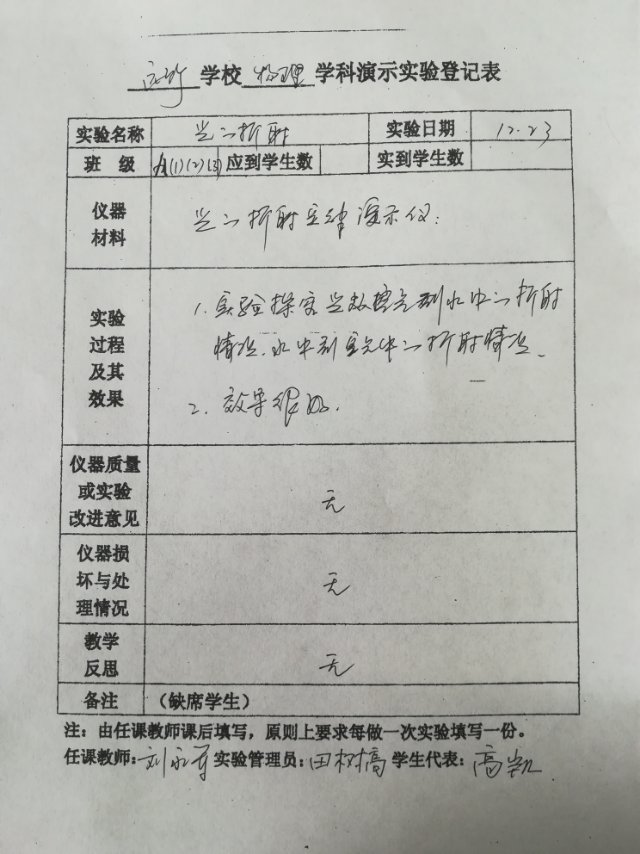 学校 物理 学科演示实验登记表
实验名称 光的折射 实验日期 12.23
班 级 (1)(2)(3) 应到学生数 实到学生数
仪器
材料
光的折射定律演示仪.
实验
过程
及其
效果
1.实验探究光从空气到水中的折射
情况.水中到空气中的折射情况.
2.效果很好.
仪器质量
或实验
改进意见
无
仪器损
坏与处
理情况
无
教学
反思
无
备注 (缺席学生)
注：由任课教师课后填写，原则上要求每做一次实验填写一份。
任课教师：刘永军 实验管理员：田树高 学生代表：高凯